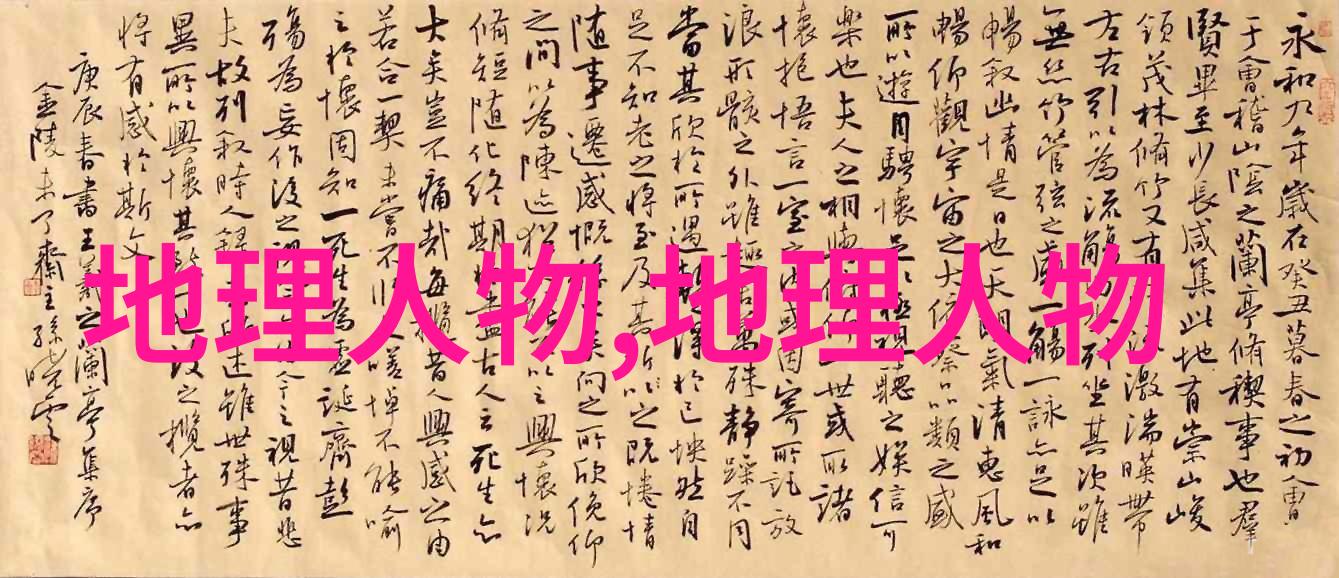 永和九年歲在癸丑暮春之初會
于會稽山陰之蘭亭脩稧事也羣
賢畢至少長咸集此地有崇山峻
領茂林脩竹又有激湍暎帶
左右引以為流觴列坐其次雖
無絲竹管弦之盛一觴一詠亦足以
暢叙幽情是日也天朗氣清惠風和
暢仰觀宇宙之大俯察品類之盛
所以遊目騁懷足以極視聽之娛信可
樂也夫人之相與俯仰一世或取諸
懷抱悟言一室之內或因寄所託放
浪形骸之外雖趣舍萬殊靜躁不同
當其欣於所遇暫得於己快然自
足不知老之將至及其所之既惓情
隨事遷感慨係之矣向之所欣俛仰
之間以為陳迹猶不以之興懷況
脩短隨化終期於盡古人云死生亦
大矣豈不痛哉每攬昔人興感之由
若合一契未嘗不嗟悼不能喻
之於懷固知一死生為虛誕齊彭
殤為妄作後之視今之視昔悲
夫故列叙時人錄其所述雖世殊事
異所以興懷其致後之攬者亦
將有感於斯文
庚辰春書王羲之蘭亭集序
金陵未了齋主孫曉雲
地理人物,地理人物